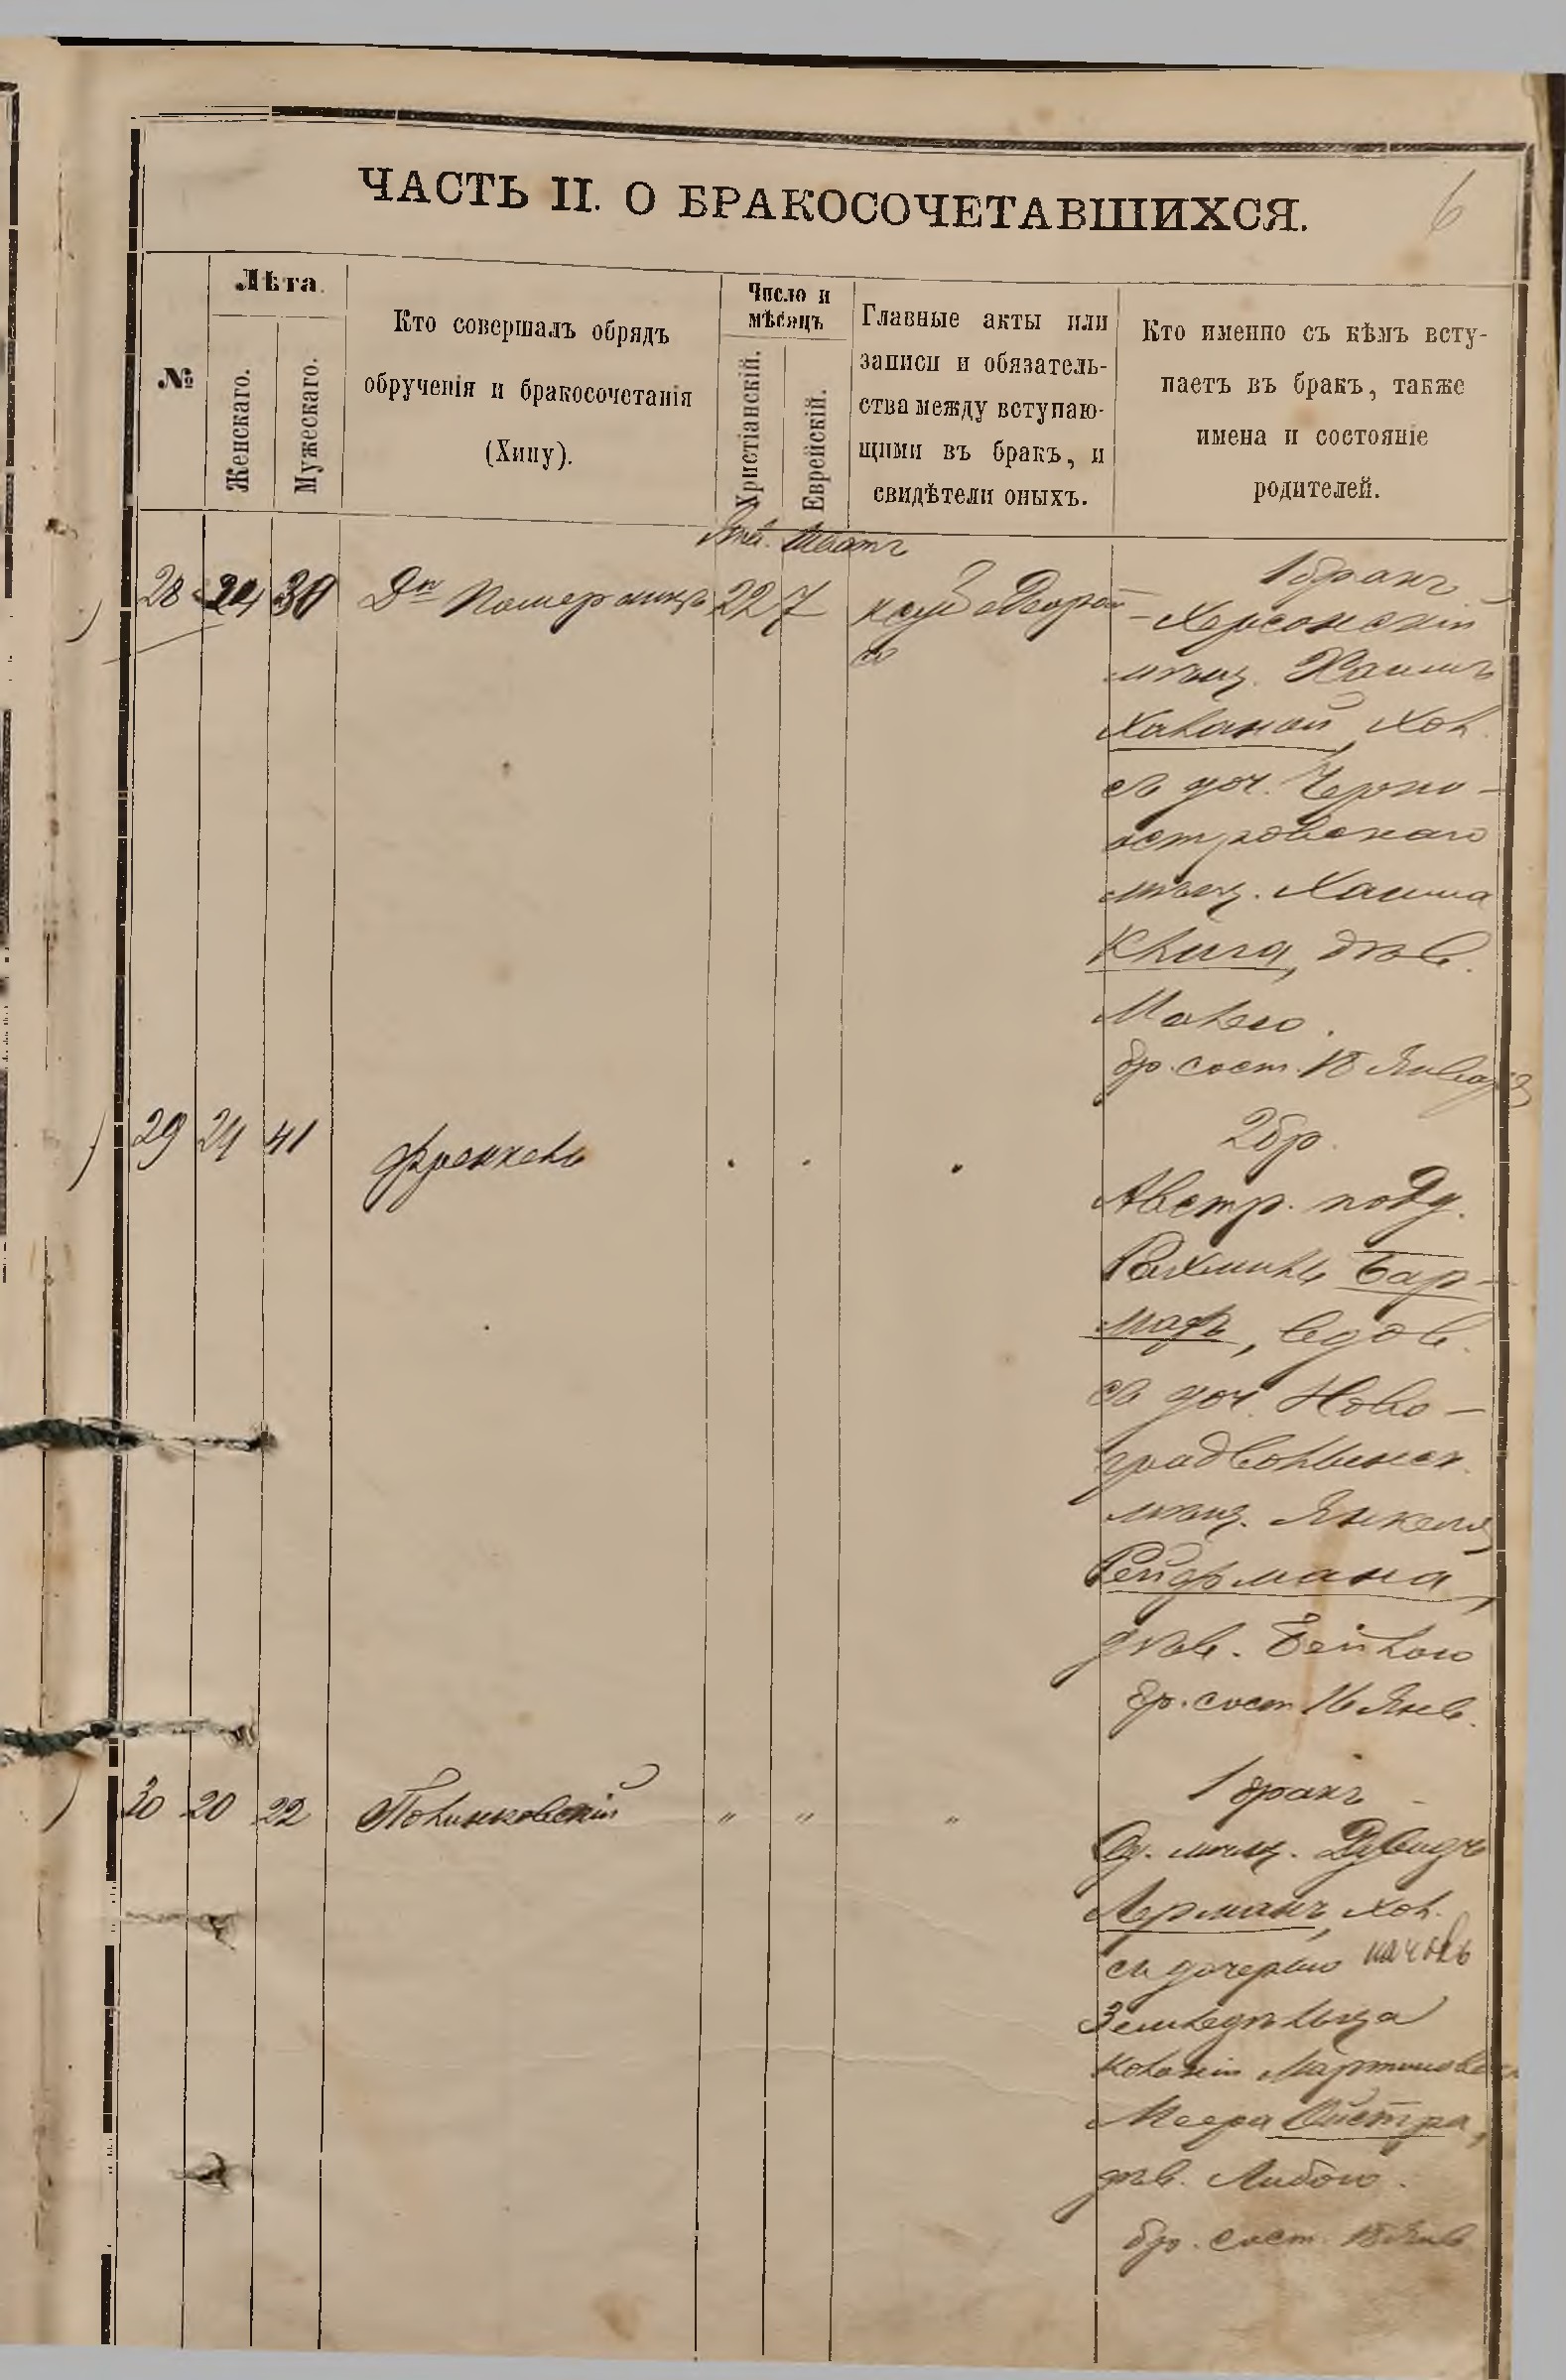 ЧАСТЬ II. О БРАКОСОЧЕТАВШИХСЯ.
6
№
Лѣта.
Женскаго.
Мужескаго.
Кто совершалъ обрядъ
обрученія и бракосочетанія
(Хипу).
Число и
мѣсяцъ
Христіанскій.
Еврейскій.
Главные акты или
записи и обязатель-
ства между вступаю-
щими въ бракъ, и
свидѣтели оныхъ.
Кто именно съ кѣмъ всту-
паетъ въ бракъ, также
имена и состояніе
родителей.
Янв. Шватъ
28 24 30 Дръ Померанцъ 22 7
1 бракъ
Херсонскій
мѣщ. Хаимъ
хол.
съ доч. Черно-
островскаго
мѣщ. Хаима
дѣв.
бр. сост. 18 Января
29 24 41 Френкель
2 бр.
Австр. подд.
Рахмиль Бар-
маръ, вдов.
съ доч. Ново-
градволынск.
мѣщ. Янкеля
Рейдрмана,
дѣв. Бейлою
бр. сост. 16 Янв.
30 20 22 Полинковскій " " "
1 бракъ
Од. мѣщ. Дувидъ
Лерманъ, хол.
съ дочерью
Земледѣльца
колоніи
Меера Ойстра,
дѣв. Либою.
бр. сост. 18 Янв